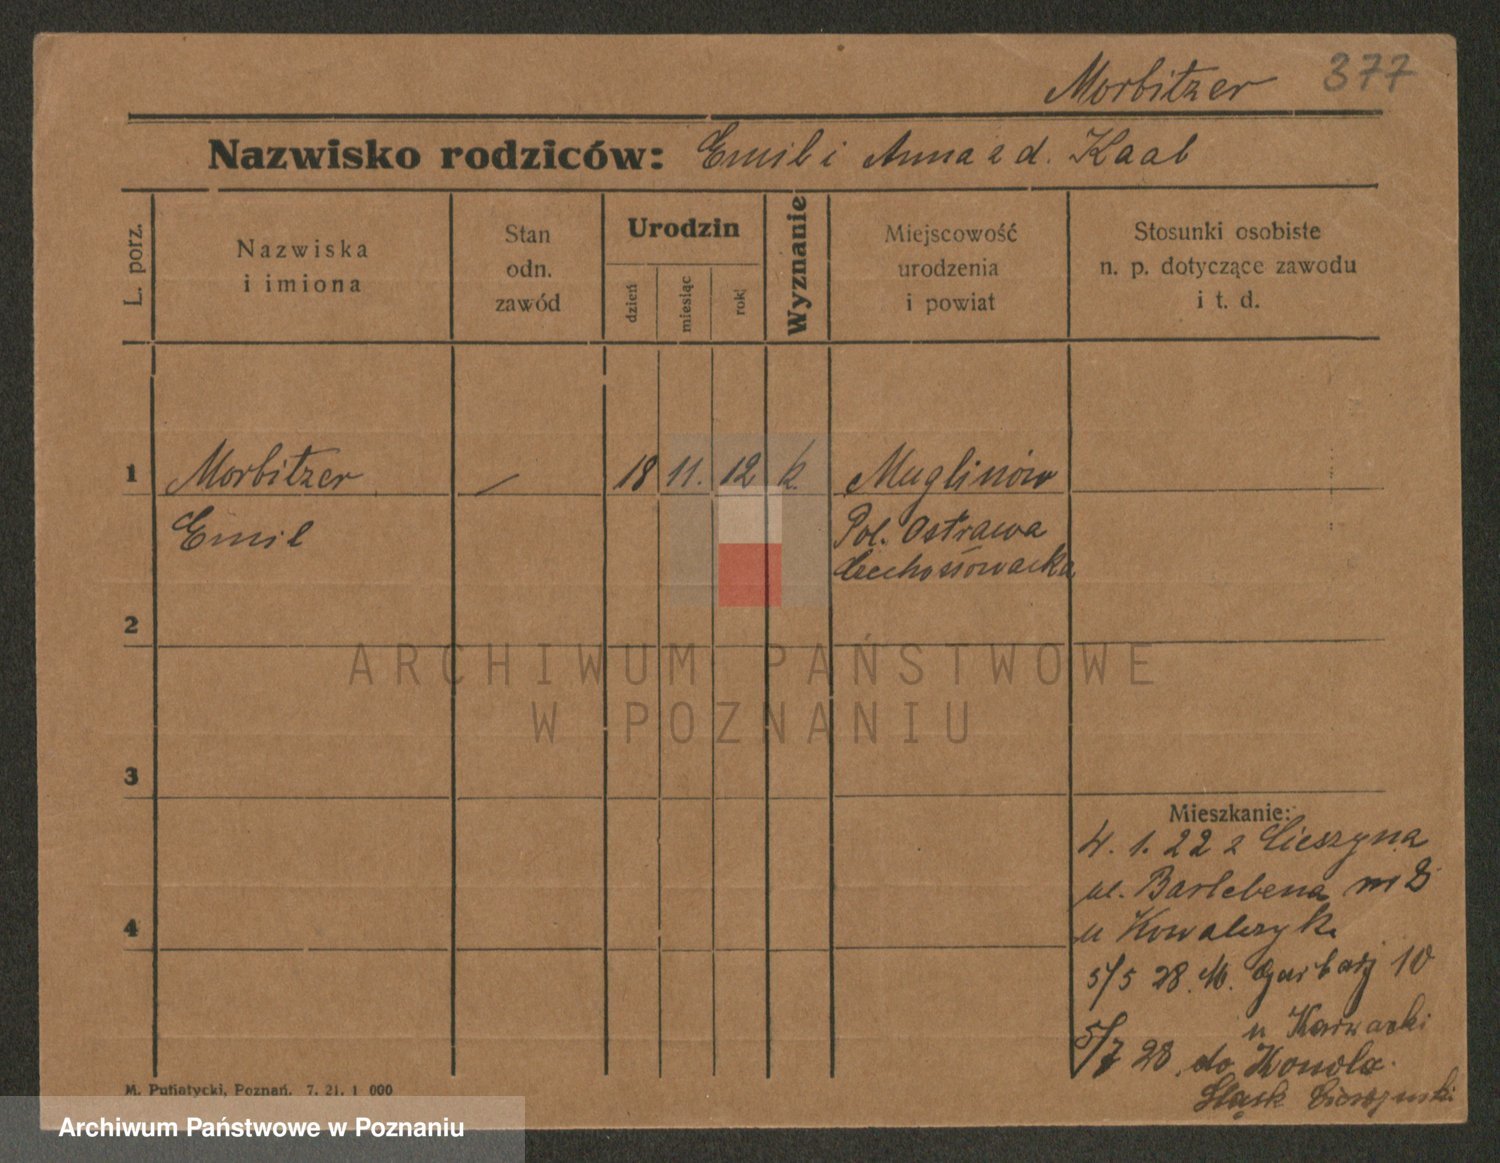 Morbitzer 377
Nazwisko rodziców: Emil i Anna z d. Kaal
L. porz.
Nazwiska
i imiona
Stan
odn.
zawód
Urodzin
dzień
miesiąc
rok
Wyznanie
Miejscowość
urodzenia
i powiat
Stosunki osobiste
n. p. dotyczące zawodu
i t. d.
1 Morbitzer — 18 11. 12 k. Muglinów
Emil Pol. Ostrawa
2
3
4
Mieszkanie:
4. 1. 22 z Cieszyna
ul. Barlebena nr 8
u Kowalczyk.
5/5 28. M. Garbarz 10
u Karwacki
5/7 28 do
Śląsk Cieszyński
M. Putiatycki, Poznań. 7. 21. 1 000
ARCHIWUM PAŃSTWOWE
W POZNANIU
Archiwum Państwowe w Poznaniu